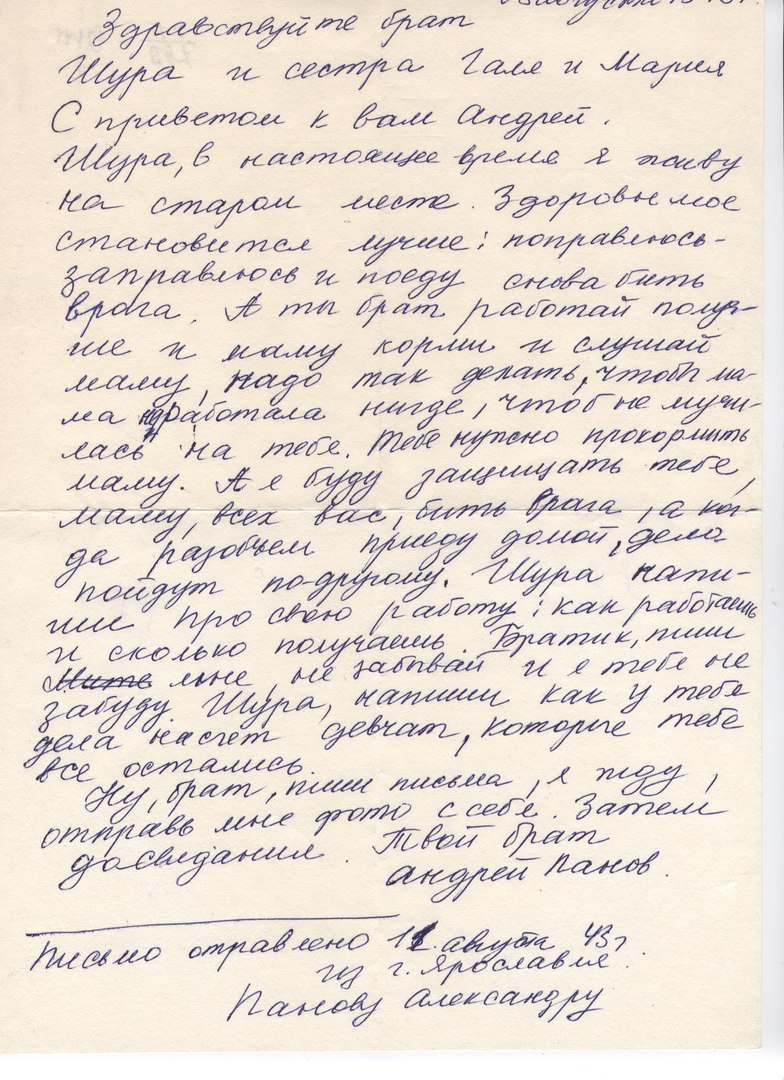 августа 1943 г.
Здравствуйте брат
Шура и сестра Галя и Мария
С приветом к вам Андрей.
Шура, в настоящее время я живу
на старом месте. Здоровье мое
становится лучше: поправлюсь-
заправлюсь и поеду снова бить
врага. А ты брат работай получ-
ше и маму корми и слушай
маму, надо так делать, чтобы ма-
ма не работала нигде, чтоб не мучи-
лась на тебе. Тебе нужно прокормить
маму. А я буду защищать тебе,
маму, всех вас, бить врага, а ког-
да разобьем приеду домой, дела
пойдут по-другому. Шура напи-
ши про свою работу: как работаешь
и сколько получаешь. Братик, пиши
мне, не забывай и я тебе не
забуду. Шура, напиши как у тебе
дела насчет девчат, которые тебе
все остались.
Ну, брат, пиши письма, я жду,
отправь мне фото с себе. Затем
до свидания. Твой брат
Андрей Панов.
Письмо отправлено 11. августа 43 г
из г. Ярославля.
Панову Александру